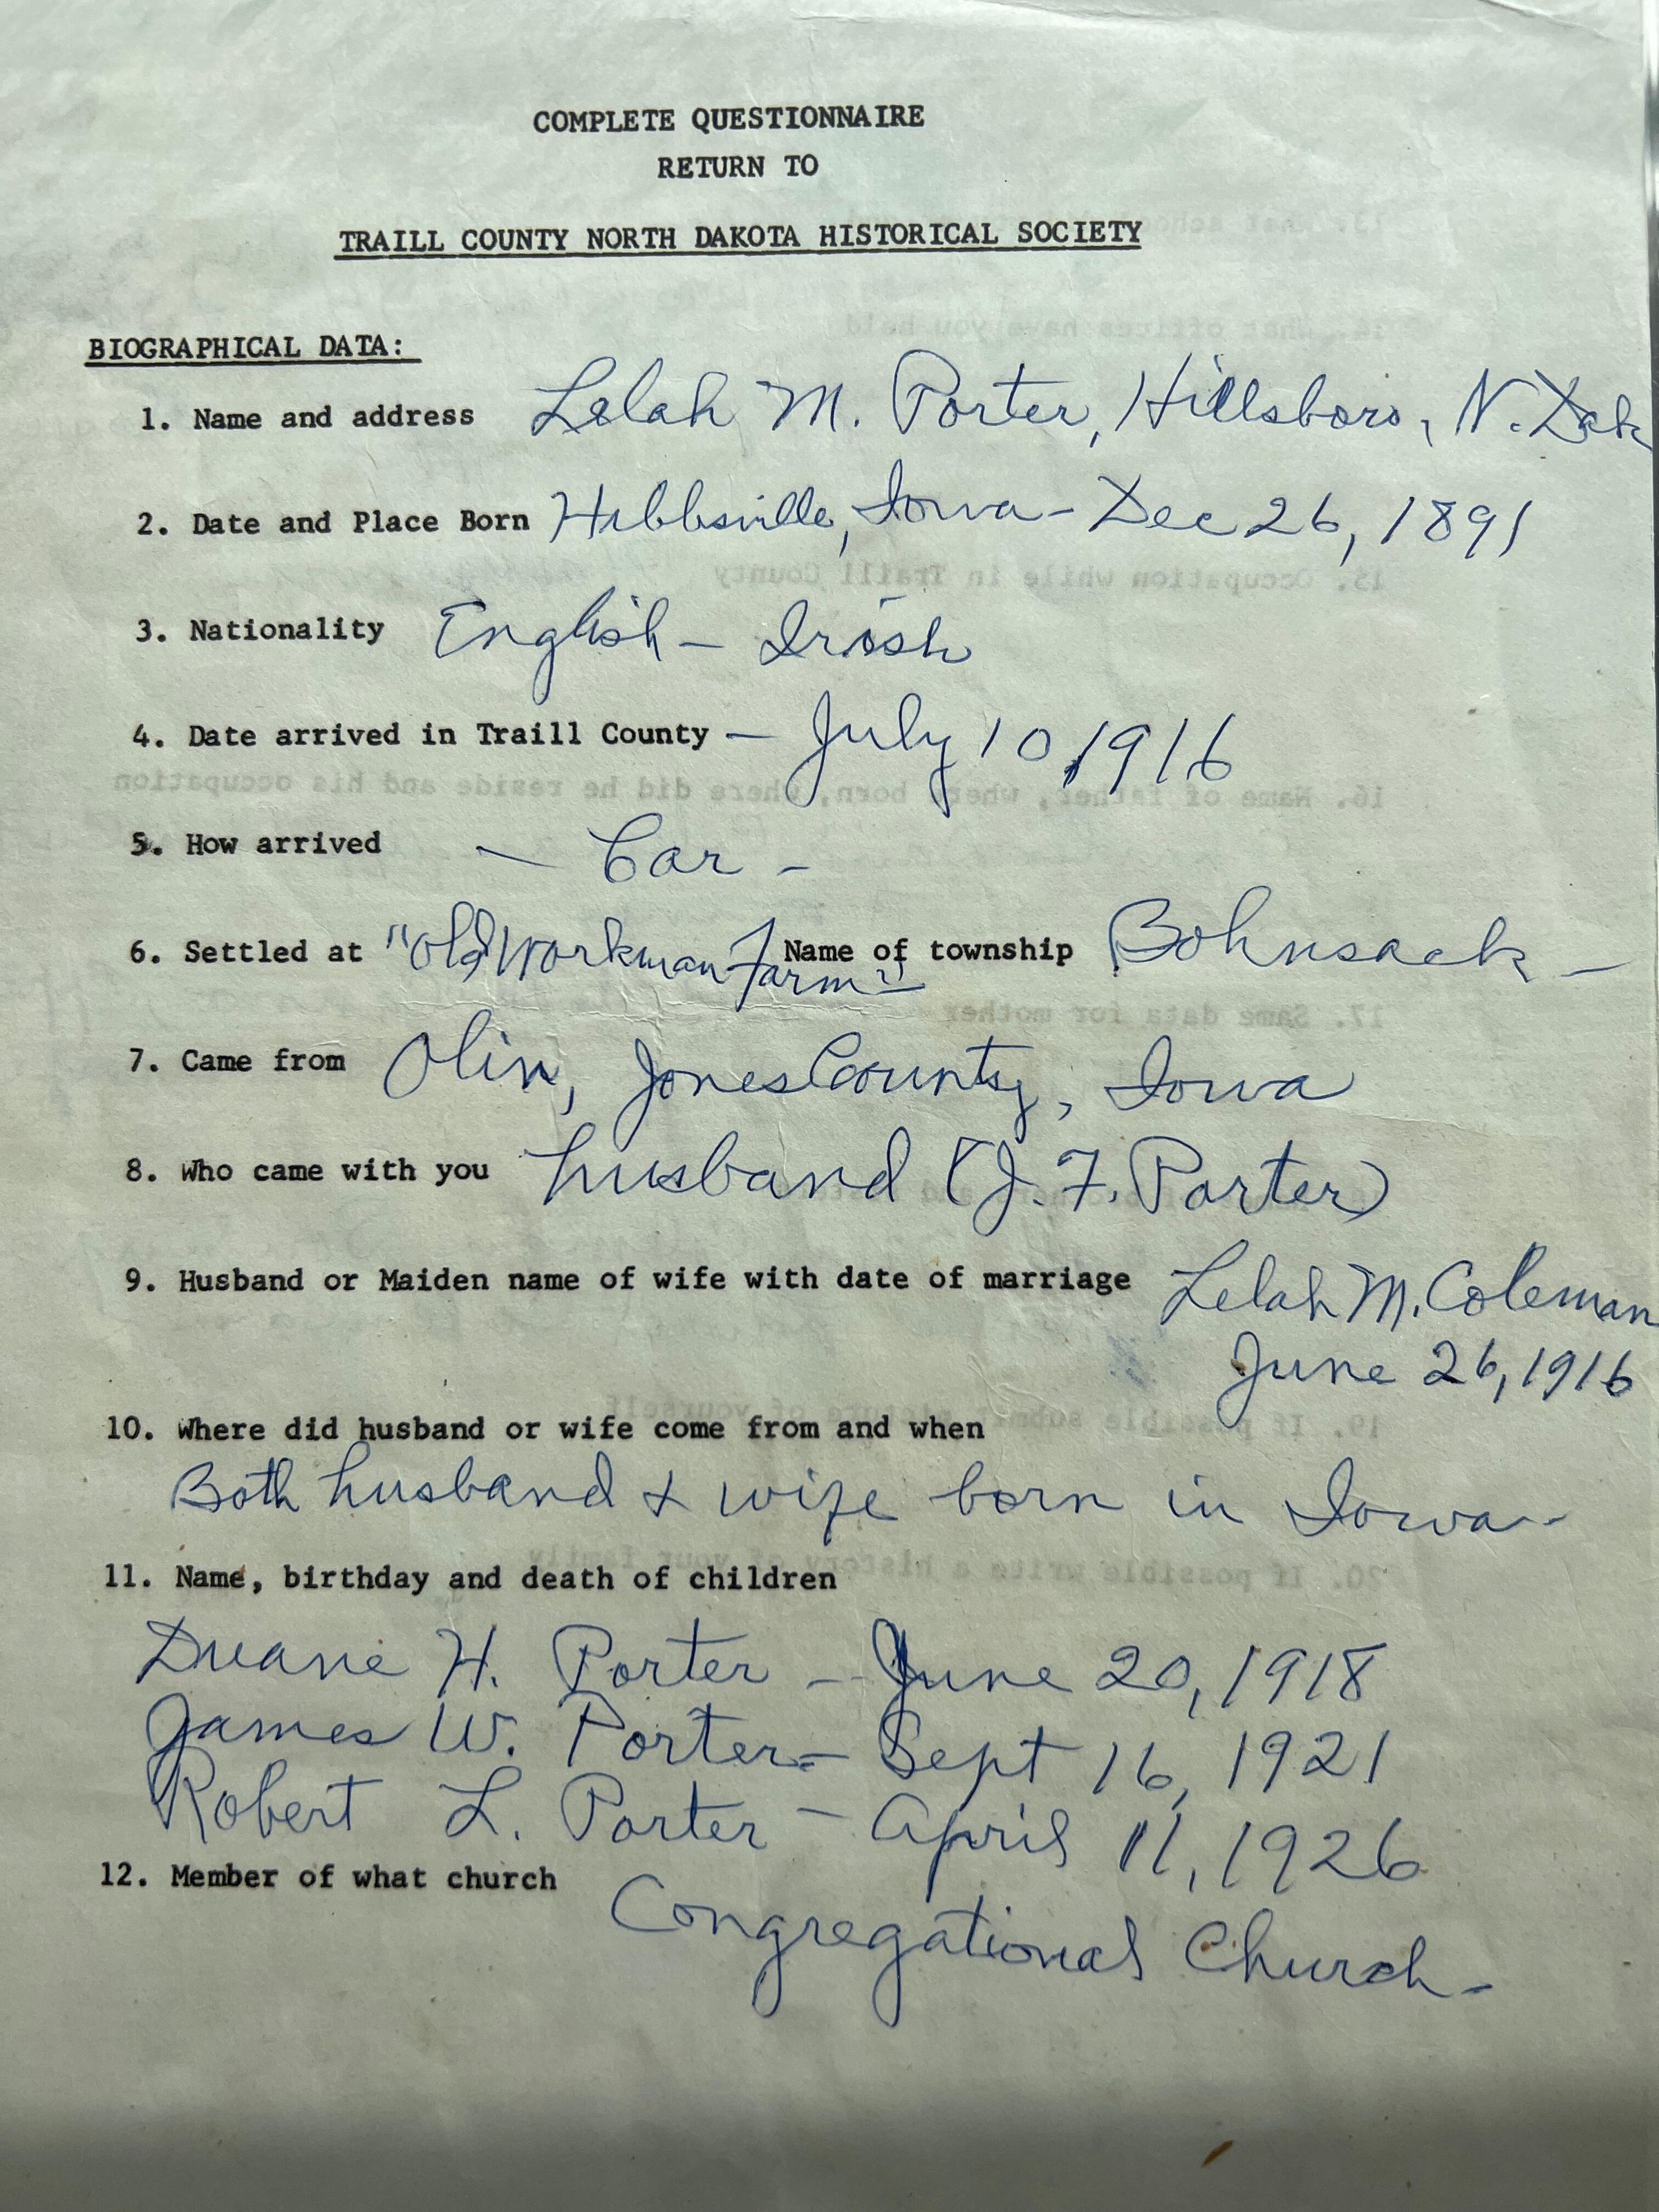 COMPLETE QUESTIONNAIRE
RETURN TO
TRAILL COUNTY NORTH DAKOTA HISTORICAL SOCIETY
BIOGRAPHICAL DATA:
1. Name and address Lelah M. Porter, Hillsboro, N. Dak
2. Date and Place Born Hebbsville, Iowa - Dec 26, 1891
3. Nationality English - Irish
4. Date arrived in Traill County - July 10, 1916
5. How arrived - Car -
6. Settled at "Old Workman Farm" Name of township Bohnsack -
7. Came from Olin, Jones County, Iowa
8. Who came with you husband (J. F. Porter)
9. Husband or Maiden name of wife with date of marriage Lelah M. Coleman
June 26, 1916
10. Where did husband or wife come from and when
Both husband & wife born in Iowa -
11. Name, birthday and death of children
Duane H. Porter - June 20, 1918
James W. Porter - Sept 16, 1921
Robert L. Porter - April 11, 1926
12. Member of what church
Congregational Church -